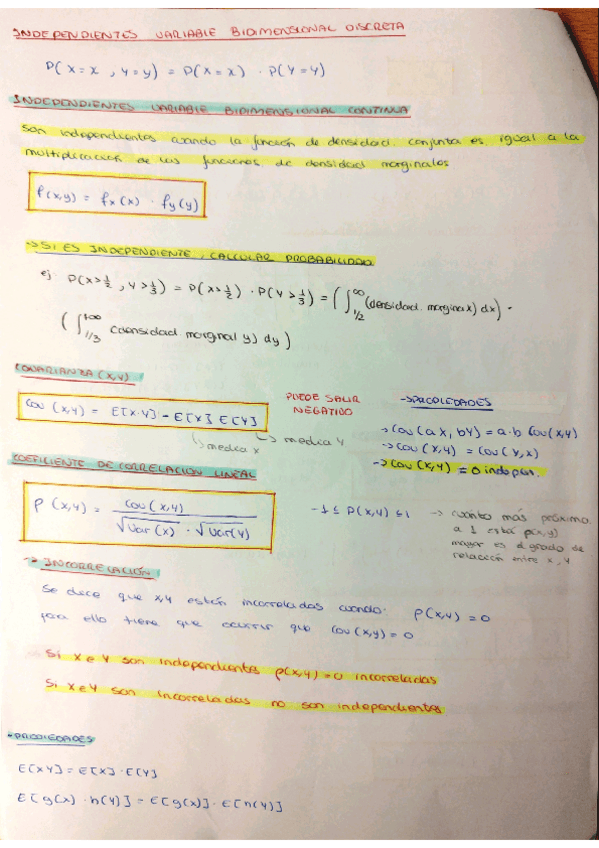 INDEPENDIENTES VARIABLE BIDIMENSIONAL DISCRETA
P(X=x , Y=y) = P(X=x) · P(Y=y)
INDEPENDIENTES VARIABLE BIDIMENSIONAL CONTINUA
Son independientes cuando la función de densidad conjunta es igual a la
multiplicación de las funciones de densidad marginales
f(x,y) = fx(x) · fy(y)
→ SI ES INDEPENDIENTE, CALCULAR PROBABILIDAD
ej: P(X>1/2 , Y>1/3) = P(X>1/2) · P(Y>1/3) = (∫_{1/2}^{∞} (densidad marginal x) dx) ·
(∫_{1/3}^{+∞} (densidad marginal y) dy)
COVARIANZA (X,Y)
Cov (X,Y) = E[X·Y] - E[X] E[Y]
↳ media x
↳ media y
PUEDE SALIR
NEGATIVO
→ PROPIEDADES
→ Cov(aX, bY) = a·b Cov(X,Y)
→ Cov(X,Y) = Cov(Y,X)
→ Cov(X,Y) = 0 indepen.
COEFICIENTE DE CORRELACION LINEAL
ρ(X,Y) = Cov(X,Y) / √Var(X) · √Var(Y)
-1 ≤ ρ(X,Y) ≤ 1
→ cuanto más próximo
a 1 está ρ(x,y)
mayor es el grado de
relación entre x, y
→ INCORRELACIÓN
Se dice que x,y están incorreladas cuando: ρ(X,Y) = 0
para ello tiene que ocurrir que Cov(X,Y) = 0
Si X e Y son independientes ρ(X,Y) = 0 incorreladas
Si X e Y son incorreladas no son independientes
→ PROPIEDADES
E[XY] = E[X] · E[Y]
E[g(X) · h(Y)] = E[g(X)] · E[h(Y)]